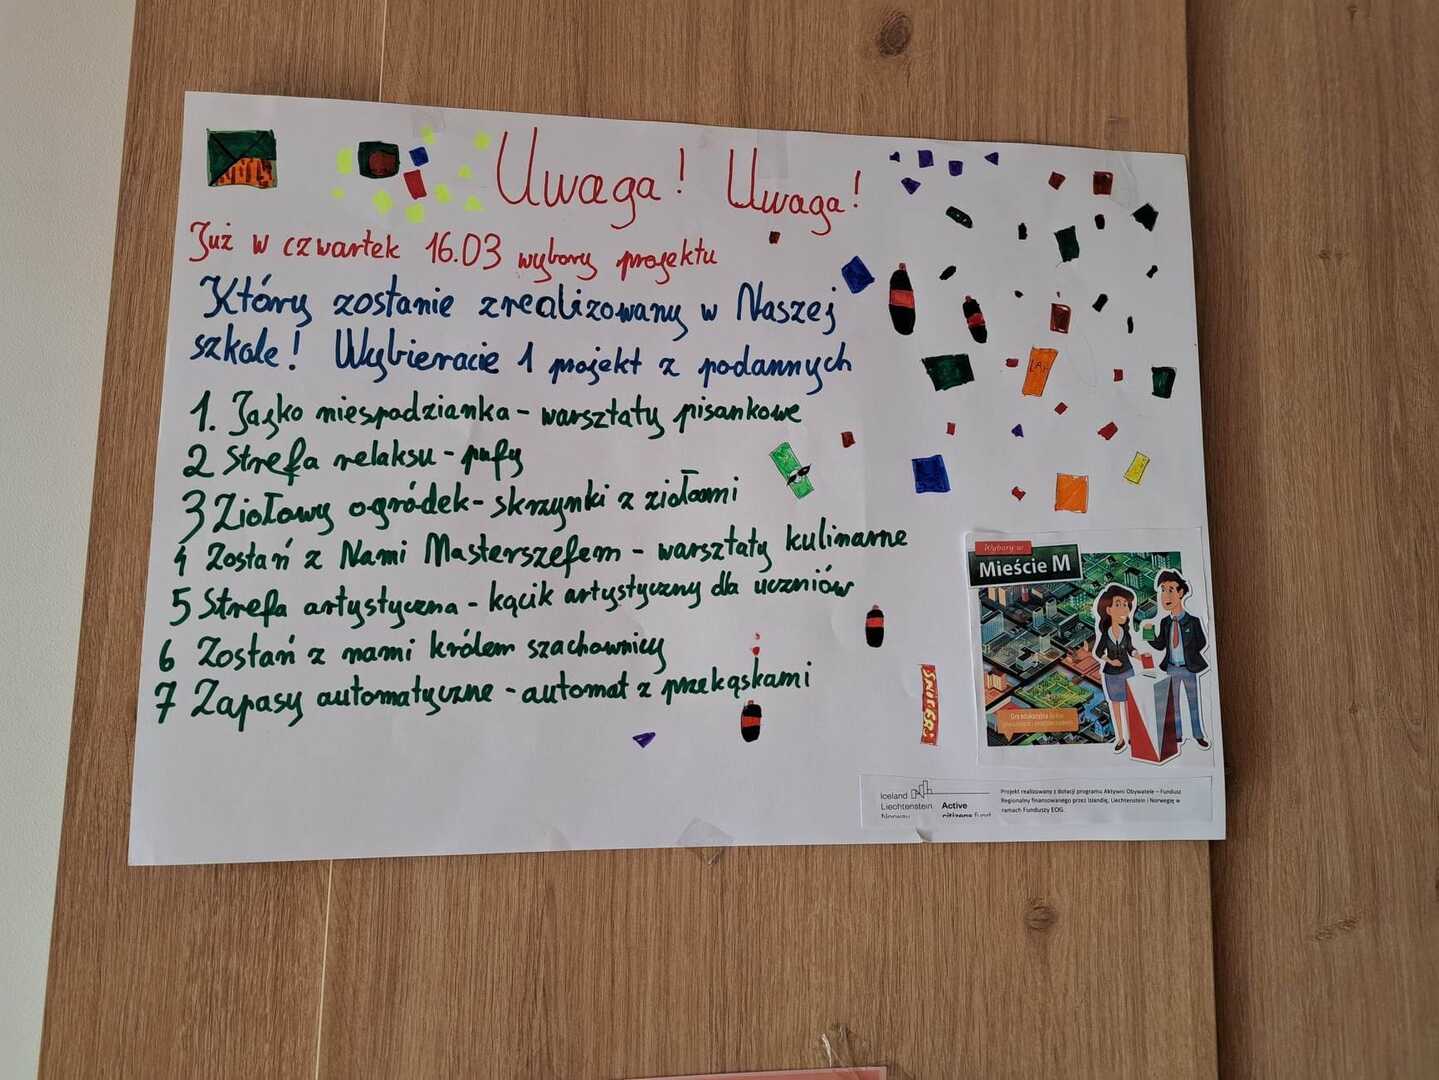 Uwaga! Uwaga!
Już w czwartek 16.03 wybory projektu
Który zostanie zrealizowany w Naszej
szkole! Wybieracie 1 projekt z podannych
1. Jajko niespodzianka - warsztaty pisankowe
2 Strefa relaksu - pufy
3 Ziołowy ogródek - skrzynki z ziołami
4 Zostań z Nami Masterszefem - warsztaty kulinarne
5 Strefa artystyczna - kącik artystyczny dla uczniów
6 Zostań z nami królem szachownicy
7 Zapasy automatyczne - automat z przekąskami
Wybory w
Mieście M
Gra edukacyjna
Iceland
Liechtenstein
Norway
Active
citizens fund
Projekt realizowany z dotacji programu Aktywni Obywatele – Fundusz
Regionalny finansowanego przez Islandię, Liechtenstein i Norwegię w
ramach Funduszy EOG.